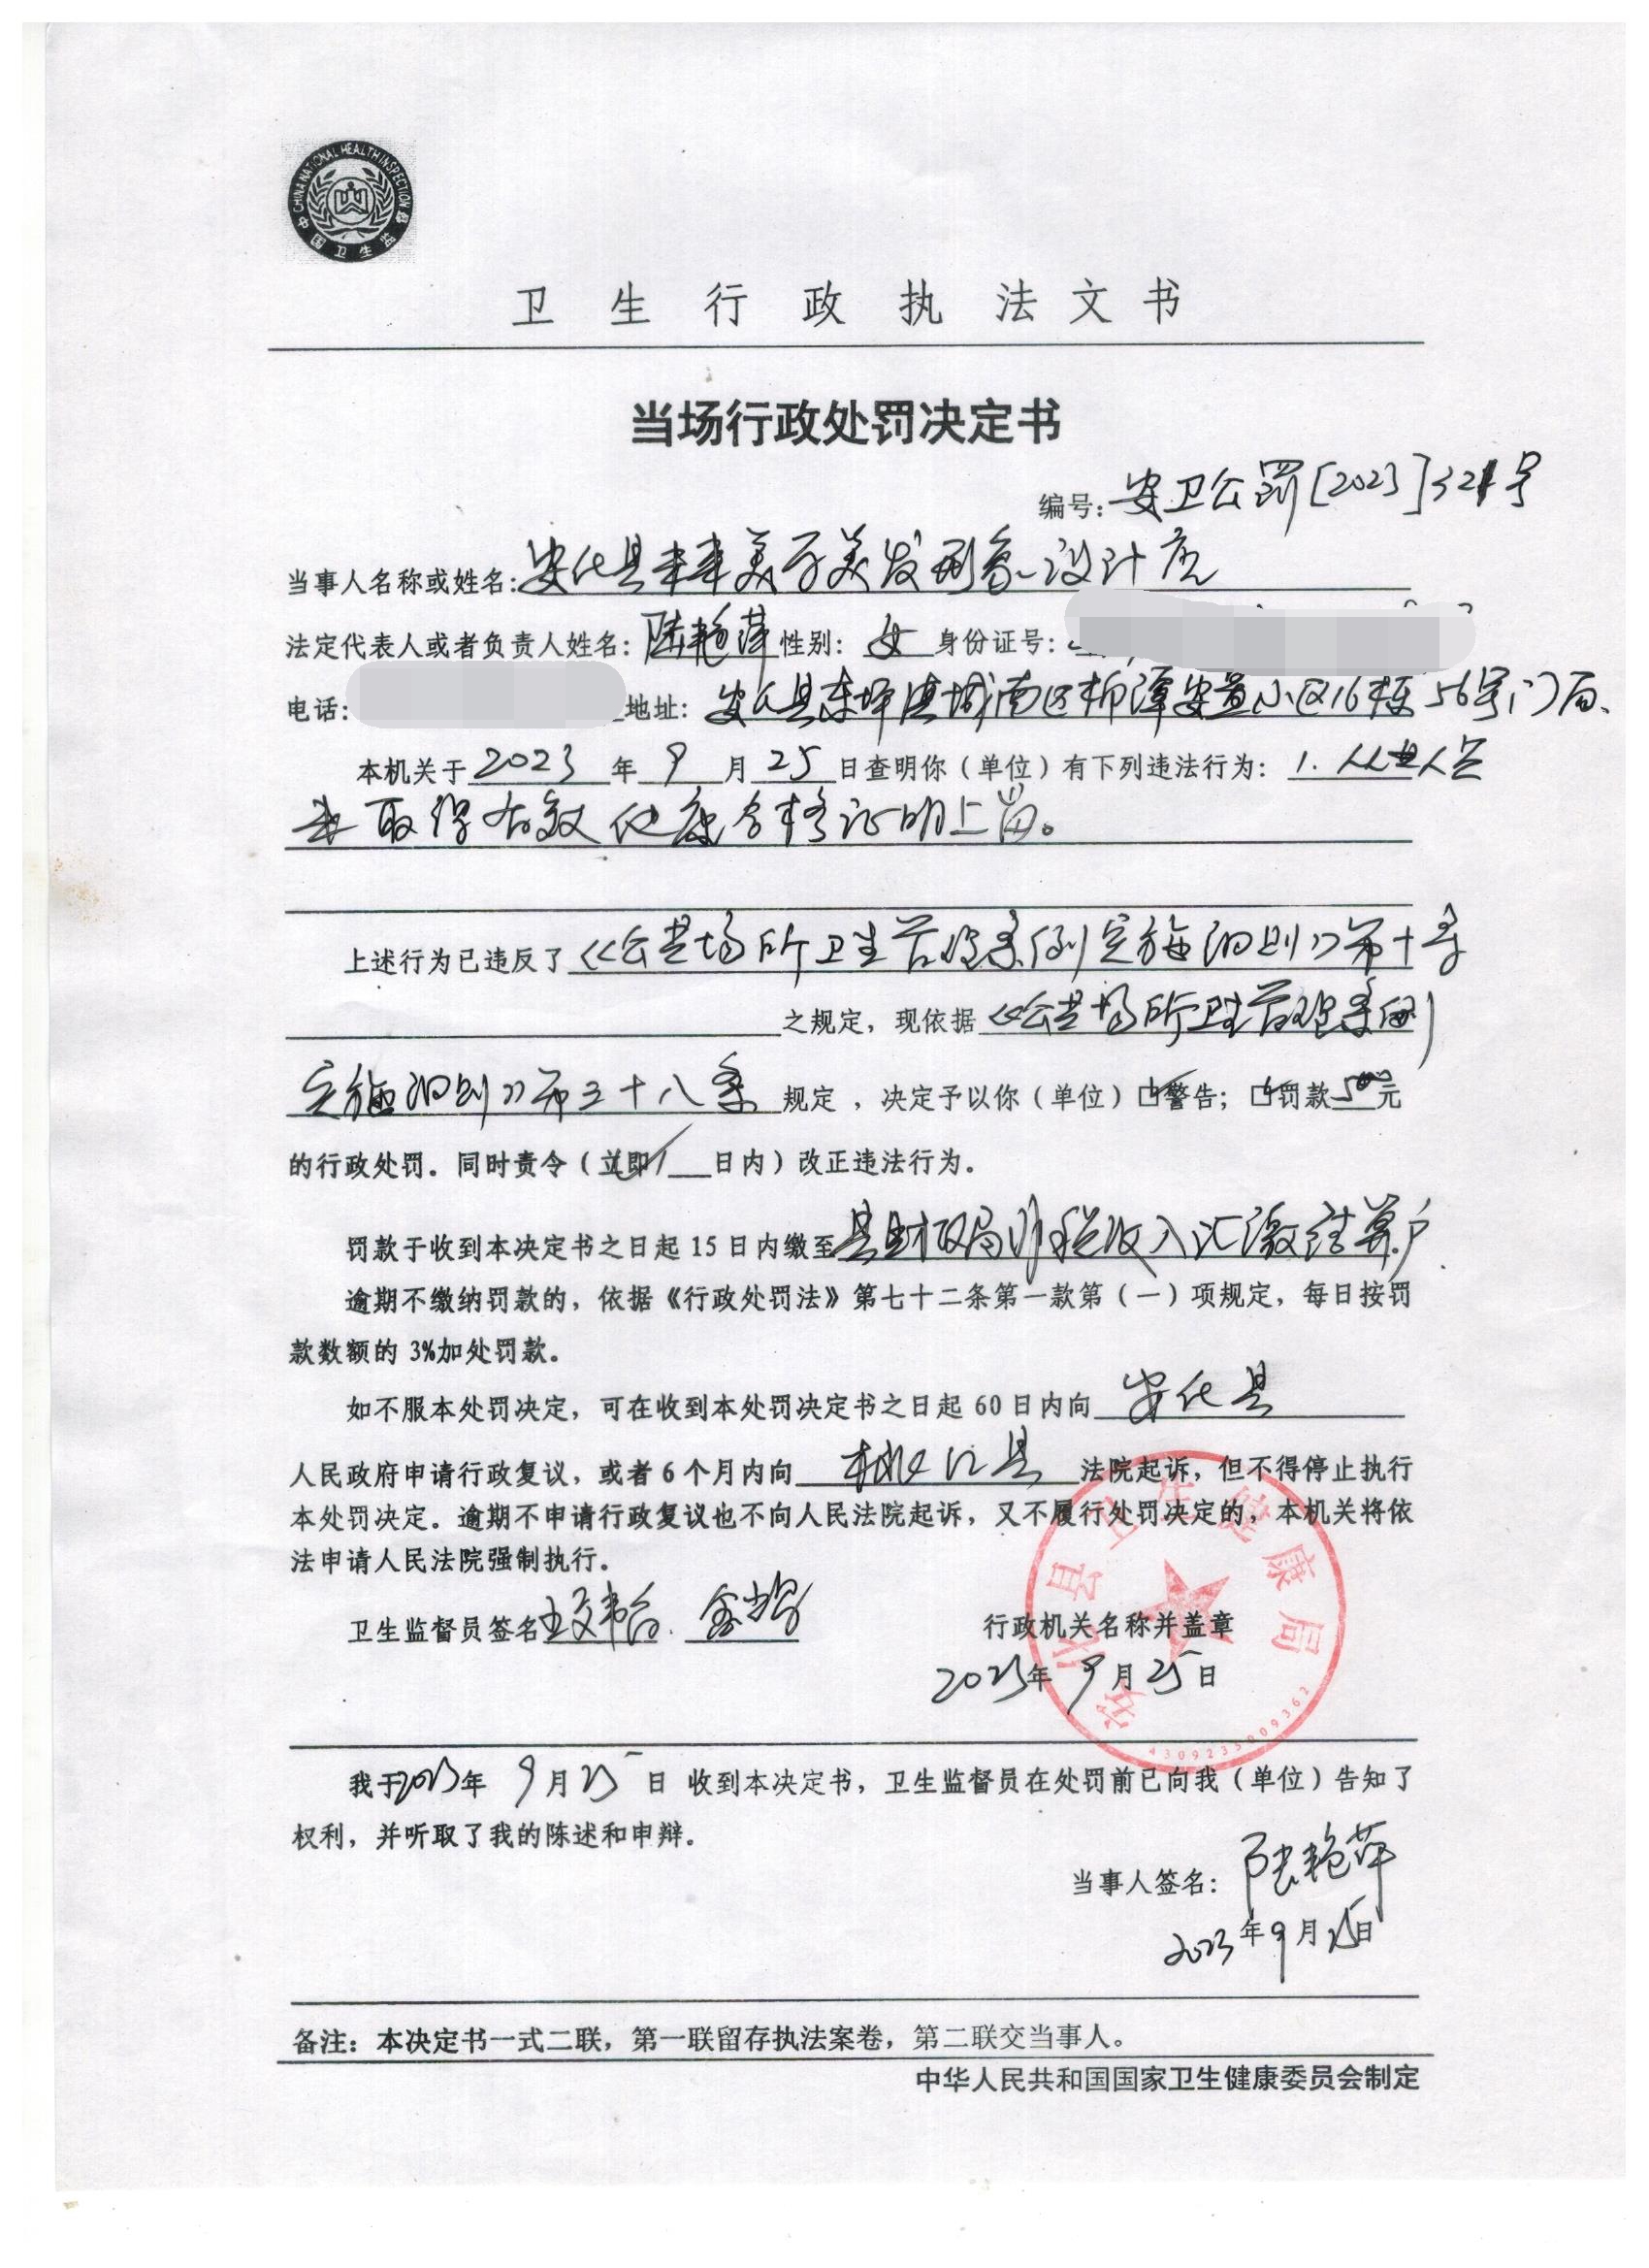 CHINA NATIONAL HEALTH INSPECTION
中国卫生监督
卫生行政执法文书
当场行政处罚决定书
编号:安卫公罚[2023]321号
当事人名称或姓名:安化县来来美子美发形象设计店
法定代表人或者负责人姓名:陆艳萍 性别:女 身份证号:
电话: 地址:安化县东坪镇城南区柳潭安置小区16栋56号门面、
本机关于2023年9月25日查明你(单位)有下列违法行为:1.从业人员
未取得有效健康合格证明上岗。
上述行为已违反了《公共场所卫生管理条例实施细则》第十条
之规定,现依据《公共场所卫生管理条例
实施细则》第三十八条规定,决定予以你(单位)☑警告;☑罚款500元
的行政处罚。同时责令(立即/ 日内)改正违法行为。
罚款于收到本决定书之日起15日内缴至县财政局非税收入汇缴结算户
逾期不缴纳罚款的,依据《行政处罚法》第七十二条第一款第(一)项规定,每日按罚
款数额的3%加处罚款。
如不服本处罚决定,可在收到本处罚决定书之日起60日内向安化县
人民政府申请行政复议,或者6个月内向桃江县法院起诉,但不得停止执行
本处罚决定。逾期不申请行政复议也不向人民法院起诉,又不履行处罚决定的,本机关将依
法申请人民法院强制执行。
卫生监督员签名
行政机关名称并盖章
2023年9月25日
安化县卫生健康局
4309235009362
我于2023年9月25日 收到本决定书,卫生监督员在处罚前已向我(单位)告知了
权利,并听取了我的陈述和申辩。
当事人签名:陆艳萍
2023年9月25日
备注:本决定书一式二联,第一联留存执法案卷,第二联交当事人。
中华人民共和国国家卫生健康委员会制定